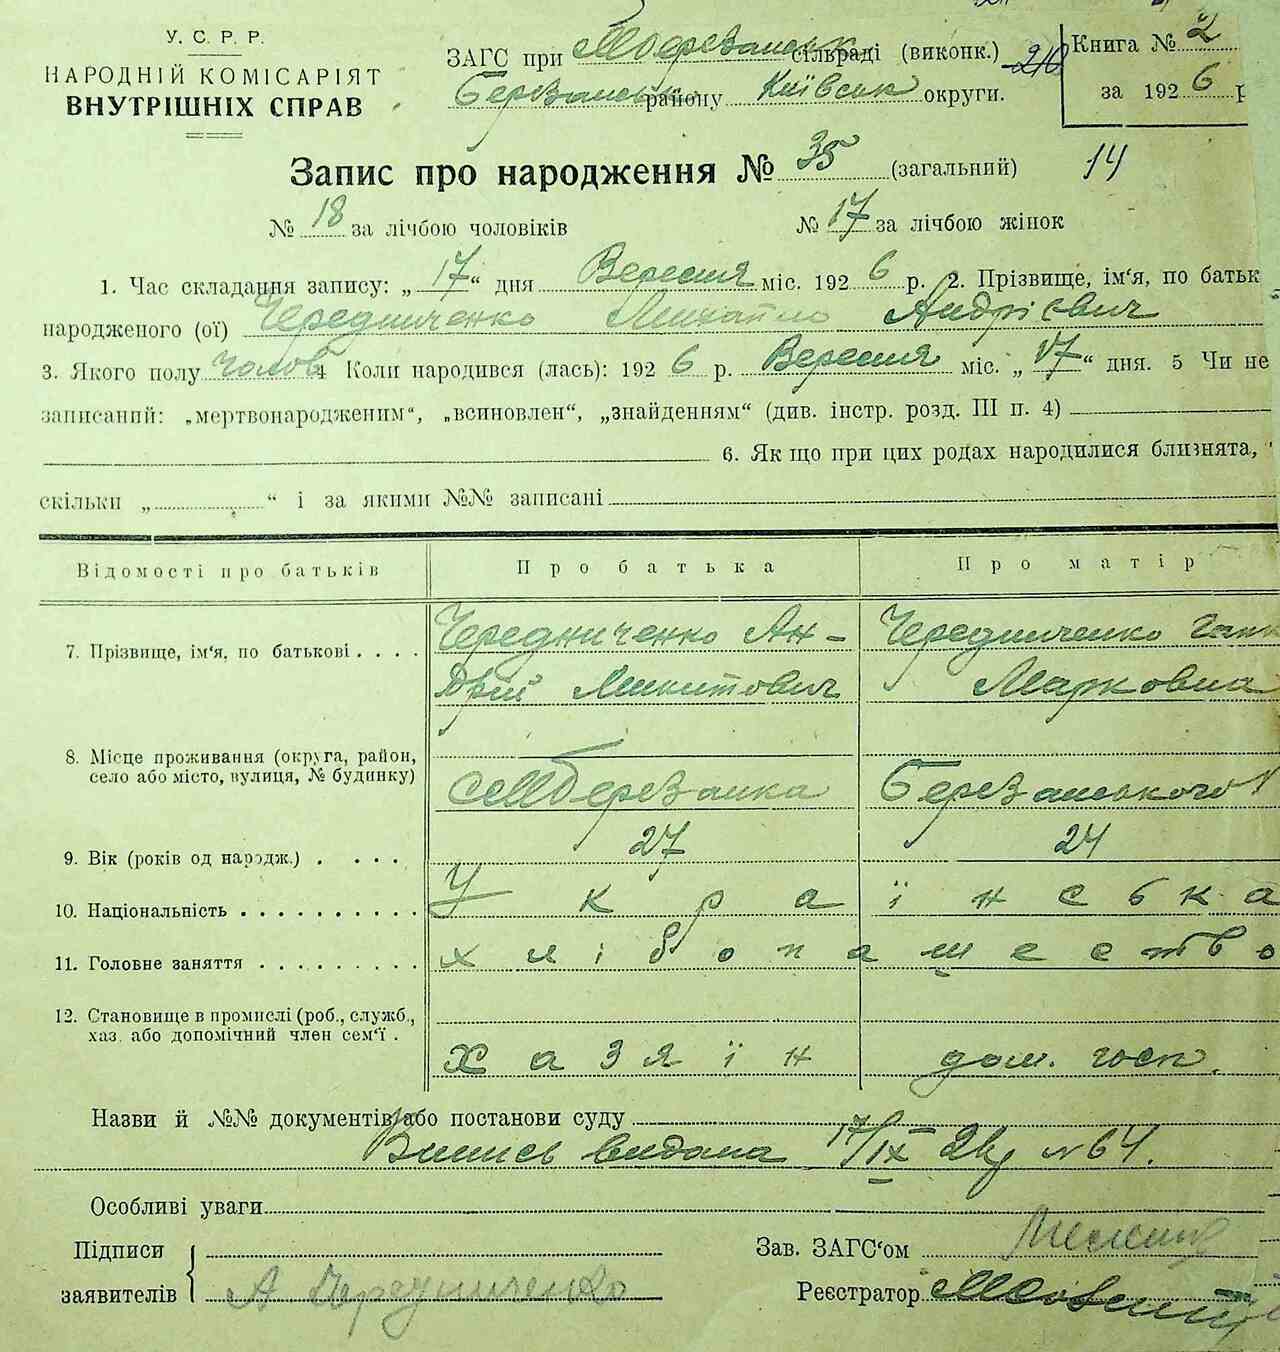 У. С. Р. Р.
НАРОДНІЙ КОМІСАРІЯТ
ВНУТРІШНІХ СПРАВ
ЗАГС при МБерезанськ сільраді (виконк.) 210
Березанськ району Київськ округи.
Книга № 2
за 1926 р
Запис про народження № 35 (загальний) 14
№ 18 за лічбою чоловіків № 17 за лічбою жінок
1. Час складання запису: „17“ дня Вересня міс. 1926 р. 2. Прізвище, ім‘я, по батьк
народженого (ої) Чередниченко Михайло Андрієвич
3. Якого полу чолов 4 Коли народився (лась): 1926 р. Вересня міс. „17“ дня. 5 Чи не
записаний: „мертвонародженим“, „всиновлен“, „знайденням“ (див. інстр. розд. III п. 4)
6. Як що при цих родах народилися близнята,
скільки „ “ і за якими №№ записані
Відомості про батьків Про батька Про матір
7. Прізвище, ім‘я, по батькові . . . . Чередниченко Ан- Чередниченко Ганн
дрій Микитович Марковна
8. Місце проживання (округа, район,
село або місто, вулиця, № будинку) с МБерезанка Березанського
9. Вік (років од народж.) . . . . 27 24
10. Національність . . . . . . . . . . Українська
11. Головне заняття . . . . . . . . . хлібопашество
12. Становище в промислі (роб., служб.,
хаз. або допомічний член сем‘ї . хазяїн дом. госп.
Назви й №№ документів або постанови суду
Випись видана 17/IX 26 № 64.
Особливі уваги
Підписи
заявителів А Чередниченко
Зав. ЗАГС‘ом
Реєстратор